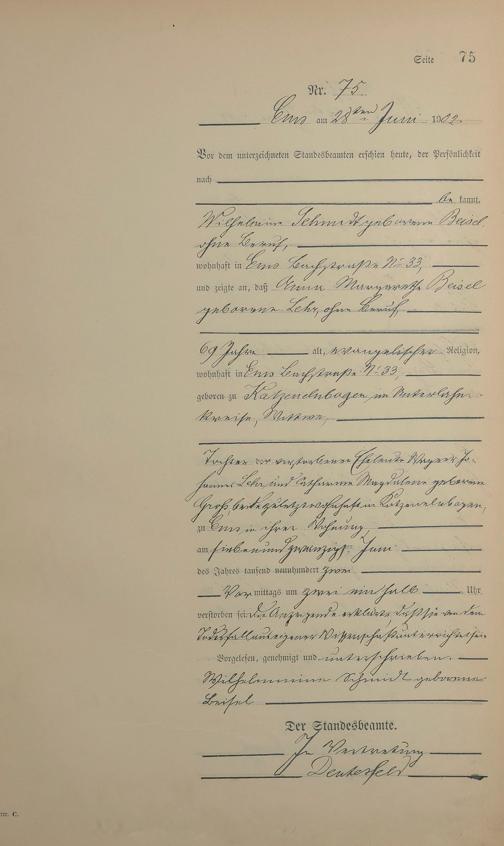 Seite 75
Nr. 75
Ems am 28ten Juni 1902.
Vor dem unterzeichneten Standesbeamten erschien heute, der Persönlichkeit
nach
be kannt,
Wilhelmine Schmidt geborene Beisel,
ohne Beruf,
wohnhaft in Ems Bachstraße No 33,
und zeigte an, daß Anna Margarethe Beisel
geborene Lehr, ohne Beruf,
69 Jahre alt, evangelischer Religion,
wohnhaft in Ems Bachstraße No 33,
geboren zu Katzenelnbogen, im Unterlahn-
kreise, Wittwe,
Tochter der verstorbenen Eheleute Wagner Jo-
hannes Lehr und Catharine Magdalene geborene
Groß, beide zuletzt wohnhaft in Katzenelnbogen,
zu Ems in ihrer Wohnung
am siebenundzwanzigst Juni
des Jahres tausend neunhundert zwei
Vor mittags um zwei ein halb Uhr
verstorben sei; die Anzeigende erklärte, daß sie von dem
Todesfall aus eigener Wissenschaft unterrichtet sei.
Vorgelesen, genehmigt und unterschrieben.
Wilhelmine Schmidt geborene
Beisel
Der Standesbeamte.
In Vertretung
C.